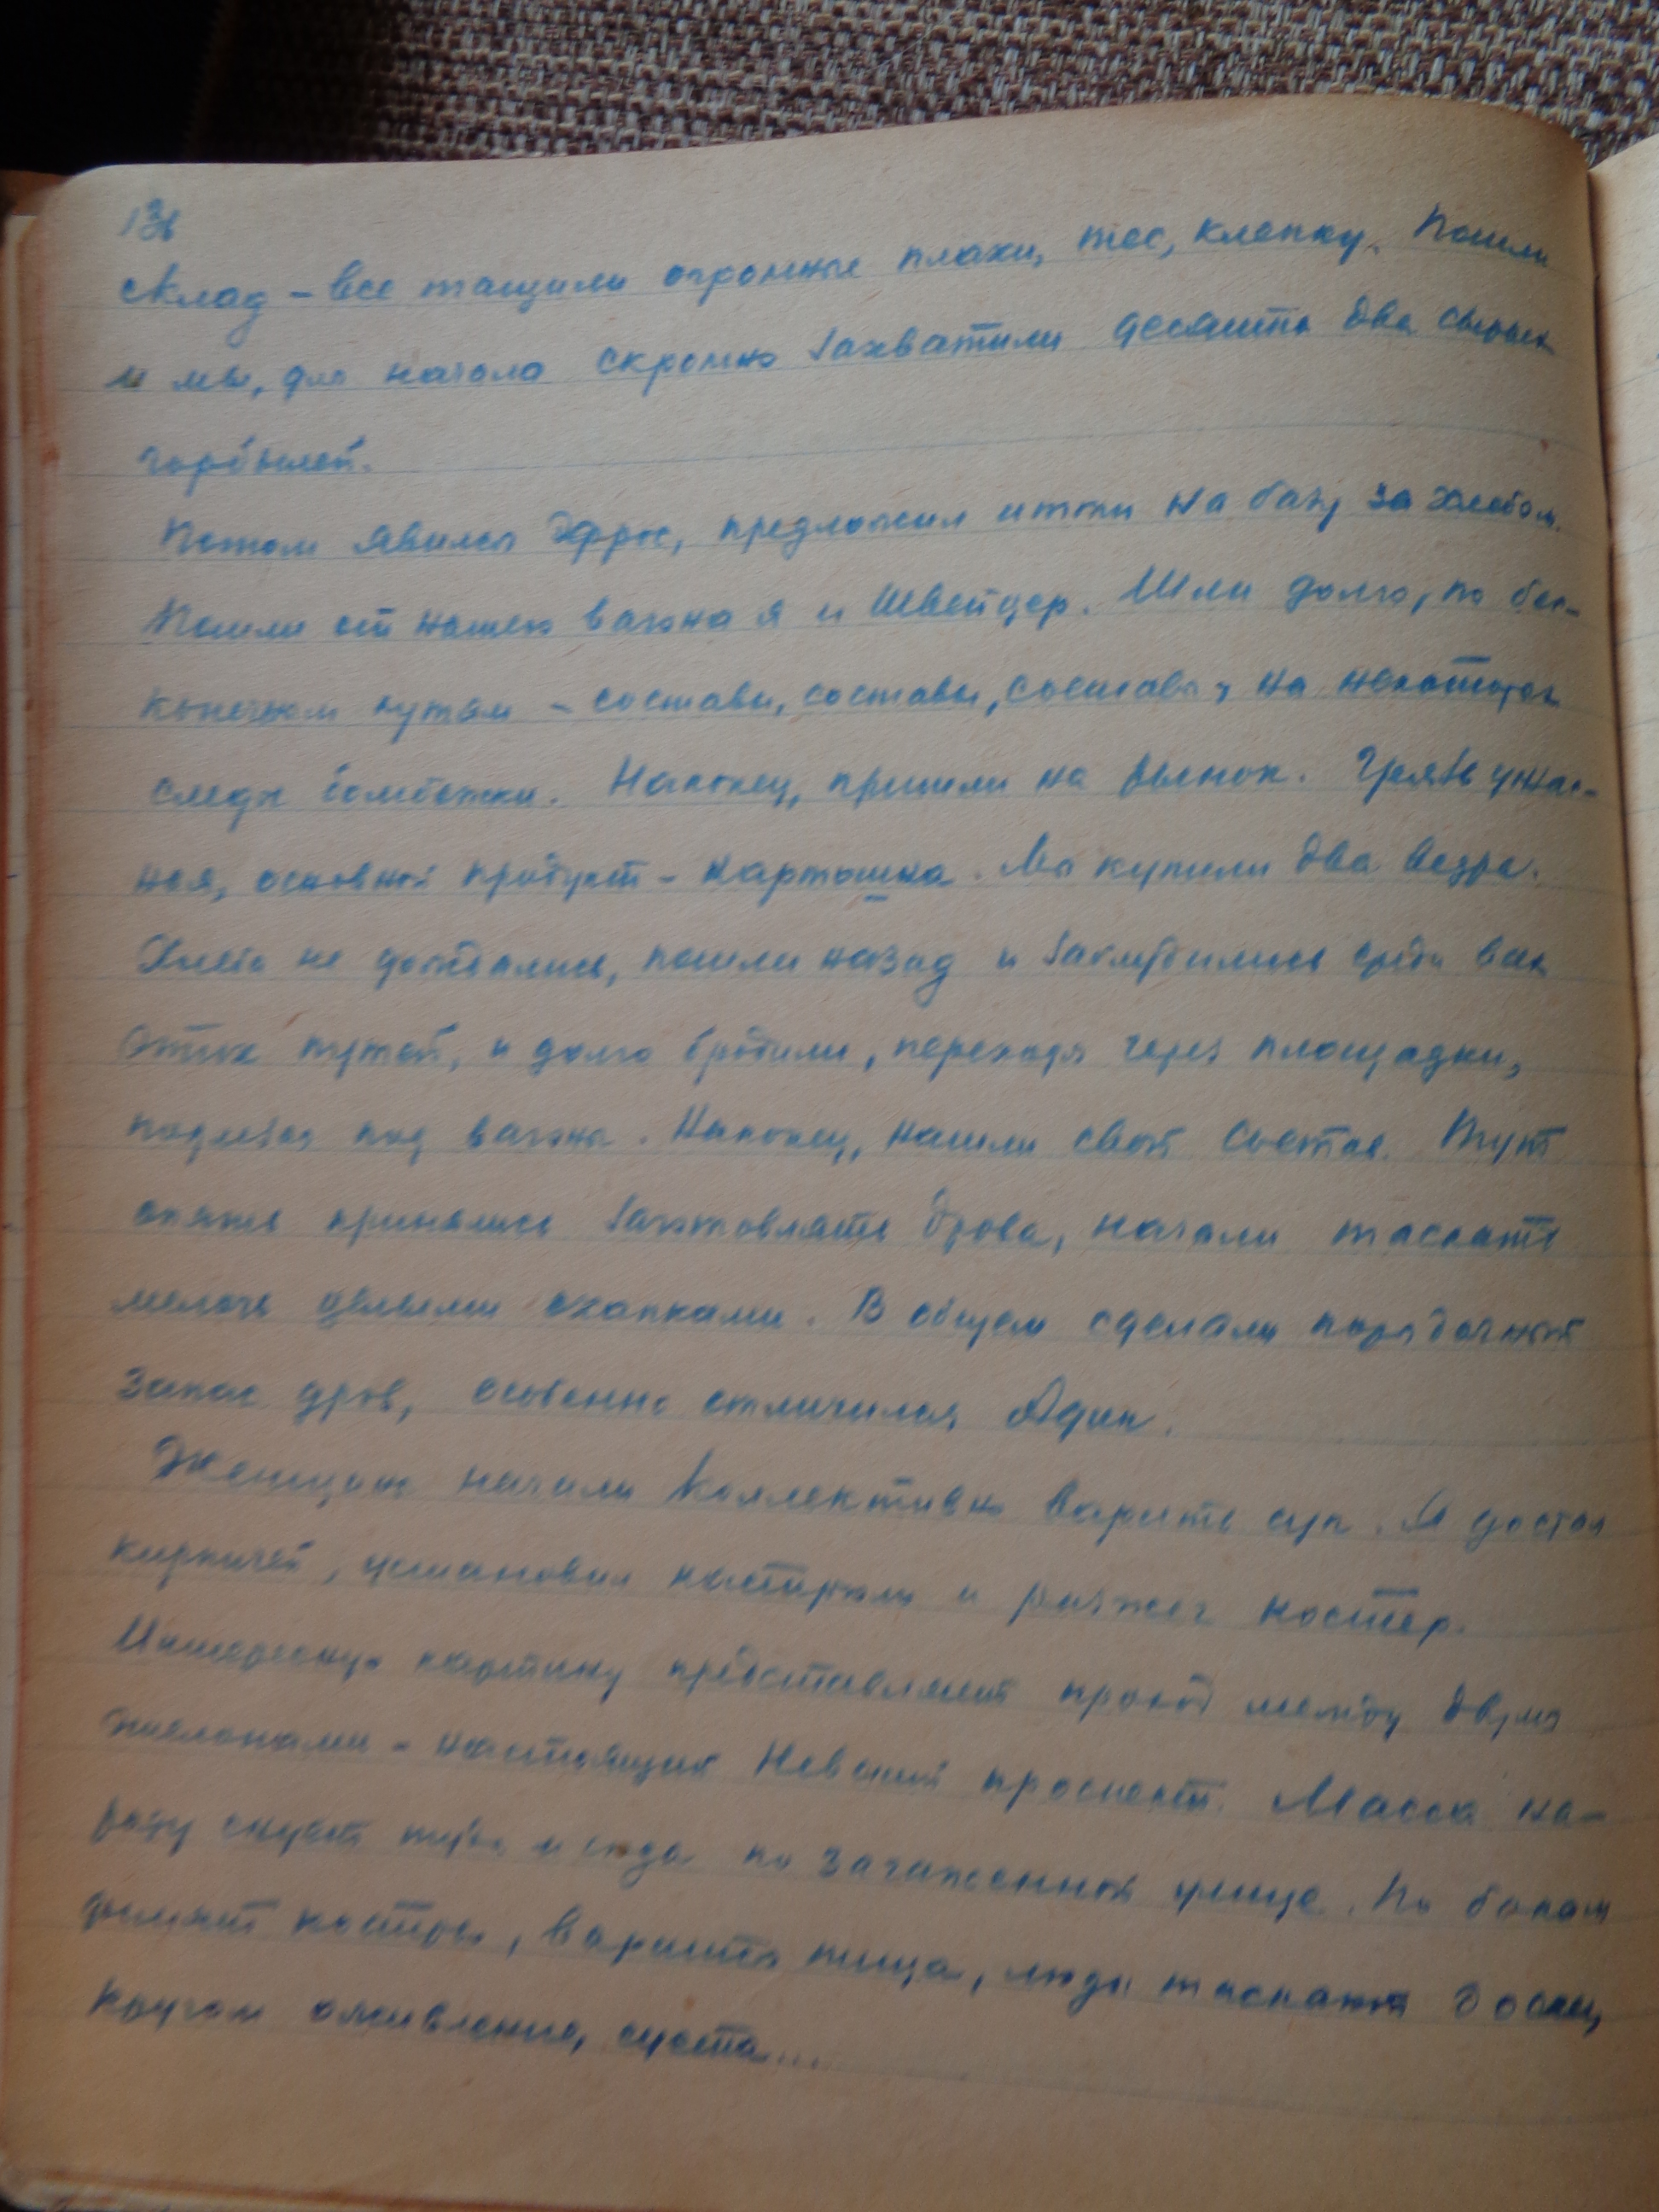 склад – все тащили огромные плахи, тес, клепку. Пошли
и мы, для начала скромно захватили десятка два сырых
горбылей.
Потом явился Эфрос, предложил итти на базу за хлебом.
Пошли от нашего вагона я и Швейцер. Шли долго, по бес-
конечным путям – составы, составы, составы, на некоторых
следы бомбежки. Наконец, пришли на рынок. Грязь ужас-
ная, основной продукт – картошка. Мы купили два ведра.
Хлеба не дождались, пошли назад и заблудились среди всех
этих путей, и долго бродили, переходя через площадки,
подлезая под вагоны. Наконец, нашли свой состав. Тут
опять принялись заготовлять дрова, начали таскать
мелочь целыми охапками. В общем сделали порядочный
запас дров, особенно отличился Адик.
Женщины начали коллективно варить суп. Я достал
кирпичей, установил кастрюли и разжег костер.
Интересную картину представляет проход между двумя
эшелонами – настоящий Невский проспект. Масса на-
роду снует туда и сюда по загаженной улице. По бокам
дымят костры, варится пища, люди таскают доски,
кругом оживление, суета...